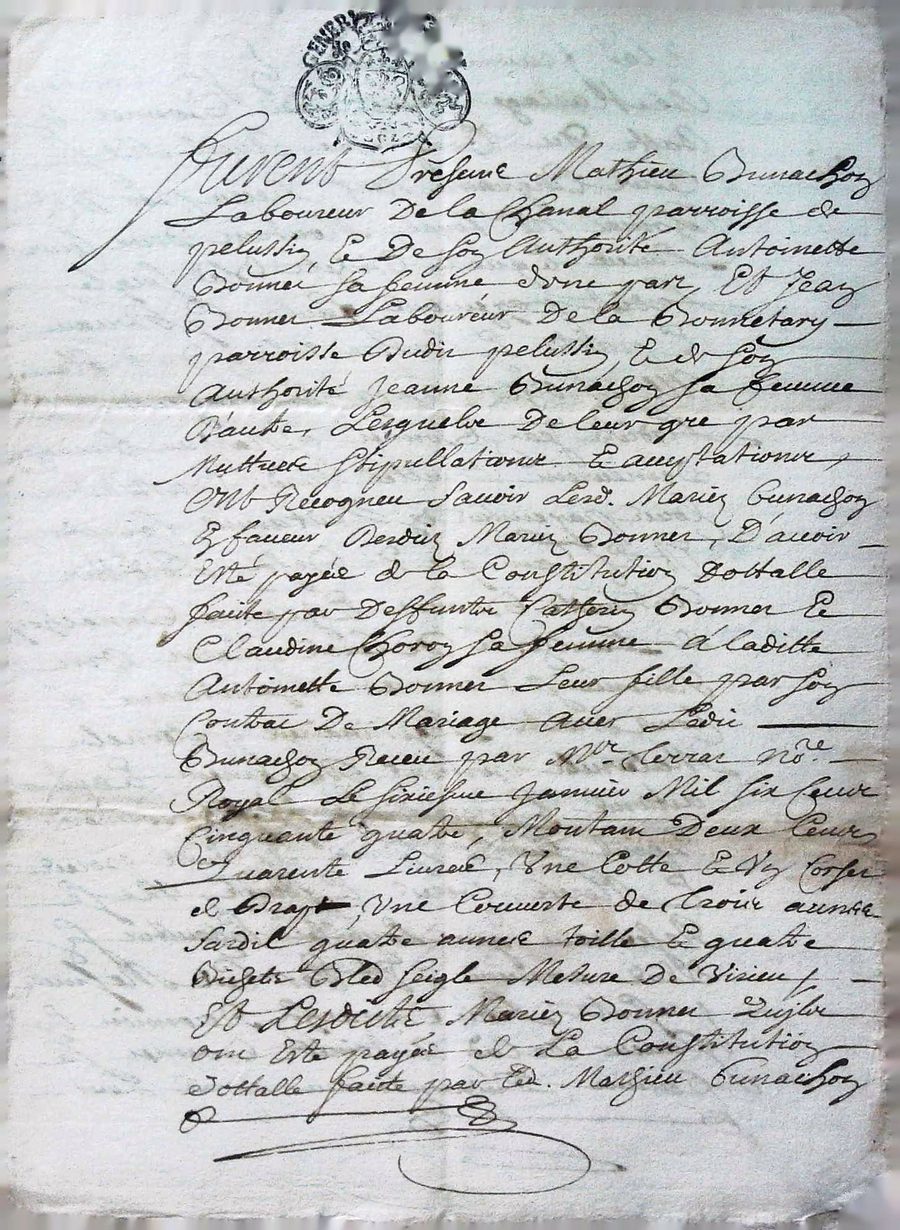 GENER
Furent Presens Mathieu Bunachon
Laboureur De la Chanal parroisse de
pelussin, & De son Authorité Antoinette
Bonnet sa femme d'une part, Et Jean
Bonnet Laboureur De la Bonnetary
parroisse Dudit pelussin, & de son
Authorité Jeanne Bunachon sa femme
D'autre, Lesquels De leur gré par
Mutuele stipullations & acceptations,
Ont Recogneu Savoir Lesd. Mariez Bunachon
En faveur Desdits Mariez Bonnet, D'avoir
Esté payée de la Constitution Dottalle
faite par Deffuntz Bonnet &
Claudine Choron sa femme á laditte
Antoinette Bonnet Leur fille par son
Contrat De Mariage avec Ledit
Bunachon Receu par Mre. Terrat Nore.
Royal Le sixiesme Janvier Mil six Cens
Cinquante quatre, Montant Deux Cens
Quarente Livres, Une Cotte & Un Corset
de Drapt, Une Couverte de Trois aunes
Sardil quatre aunes toille & quatre
Bichets Bled seigle Mesure De Virieu,
Et Lesdits Mariez Bonnet
ont Esté payée de La Constitution
dottalle faite par Led. Mathieu Bunachon